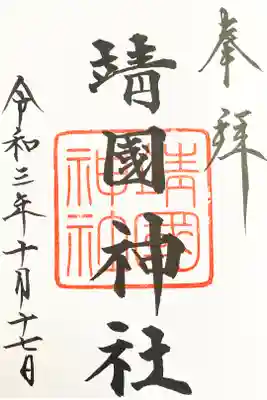 奉拝
靖國神社
靖國神社
令和三年十月十七日